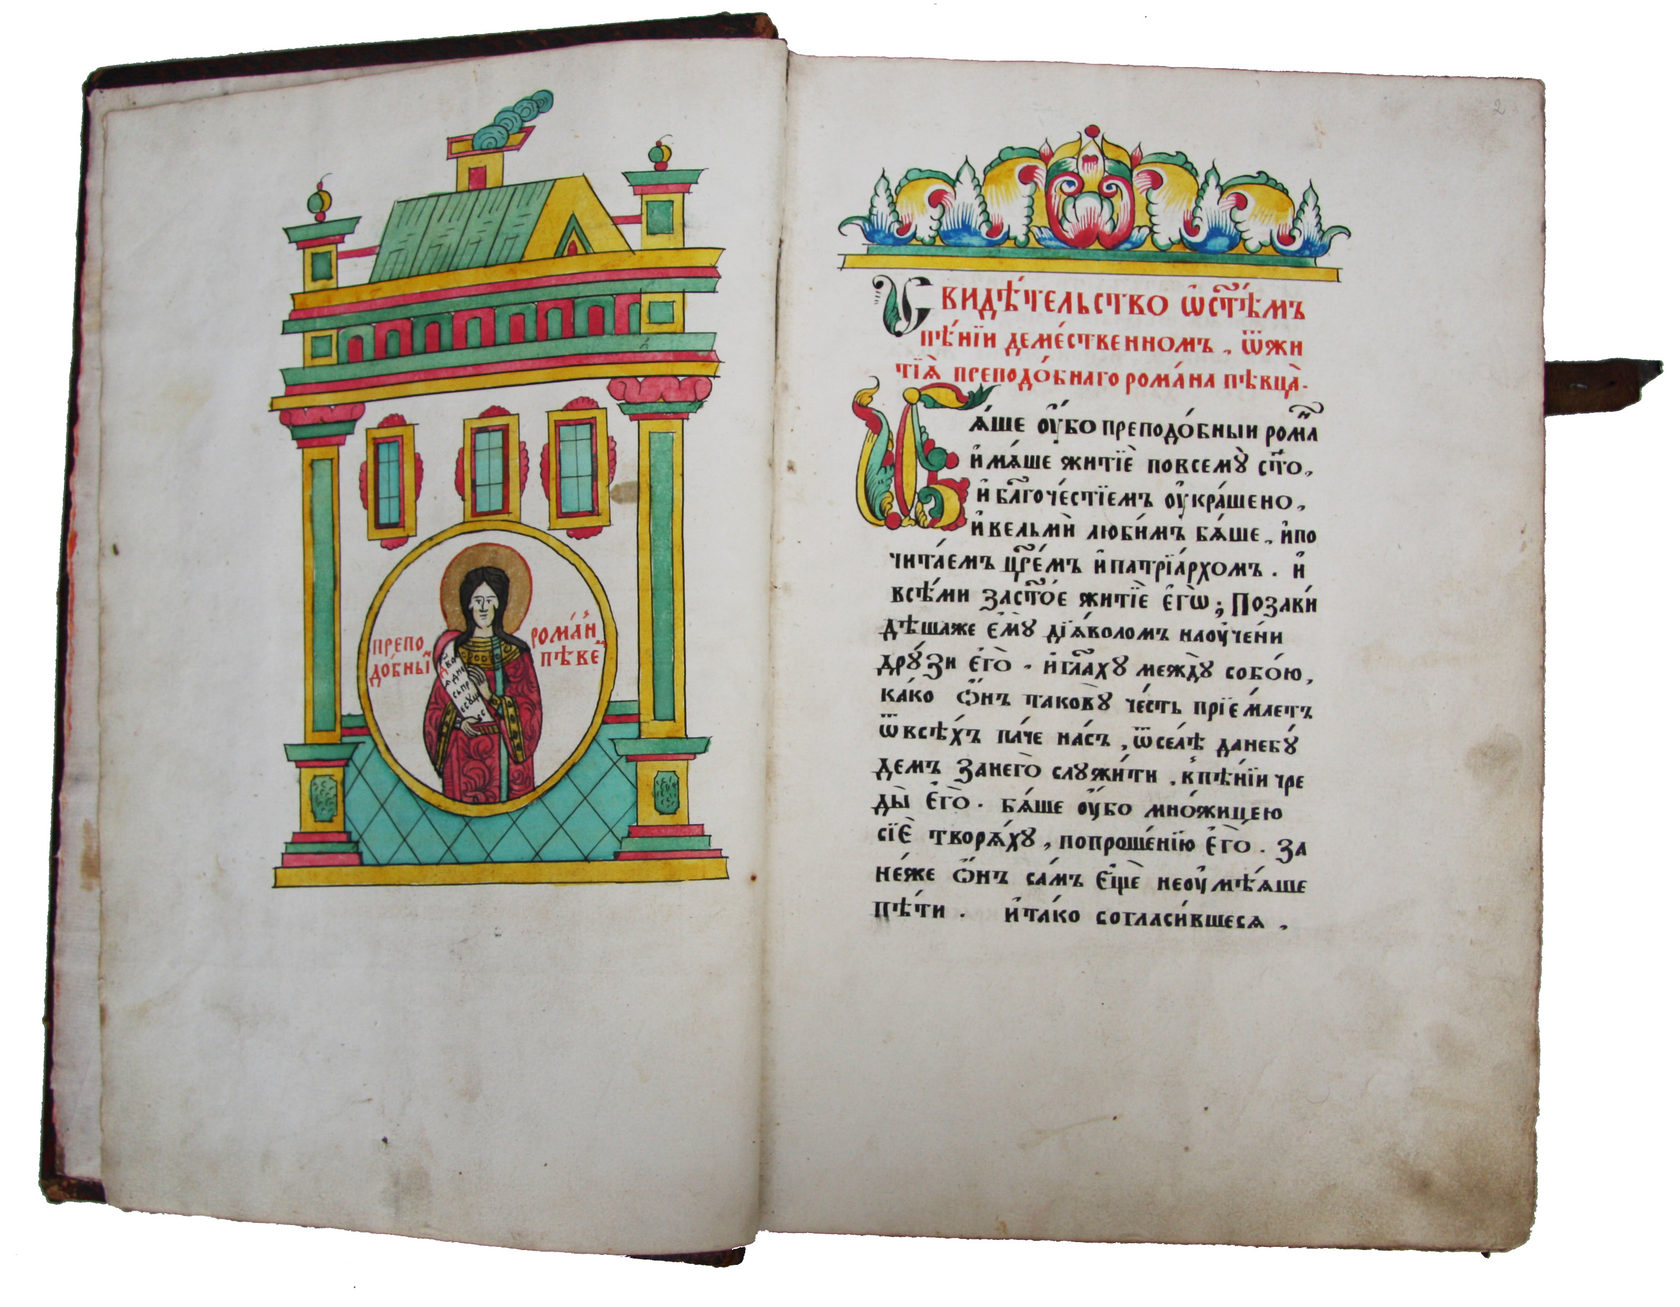 препо
добный
романъ
пѣвецъ
Свидѣтельство ѡ ст҃ѣмъ
пѣ́нїи деме́ственномъ. ѿ жи
тїѧ̀ преподо́бнаго рома́на пѣвца̀.
Бѧ́ше ᲂу҆́бо преподо́бныи рома́н
и҆мѧ́ше житїѐ повсему̀ ст҃о,
и҆ благоче́стїемъ ᲂу҆кра́шено,
и҆ вельмѝ люби́мъ бѧ́ше, и҆ по
чита́емъ цр҃е́мъ и҆ патрїа́рхомъ. и҆
всѣ́ми за ст҃о́е житїѐ є҆гѡ̀; Позави
дѣша же є҆мꙋ̀ дїѧ́воломъ наᲂуче́ни
дрꙋ́зи є҆гѡ̀. и҆ гл҃ахꙋ междꙋ̀ собо́ю,
ка́ко ѻ҆́нъ таковꙋ̀ че́сть прїе́млетъ
ѿ всѣ́хъ па́че на́съ, ѿсе́лѣ да не бꙋ́
демъ за него̀ слꙋжи́ти, к пѣ́нїи чре
ды̀ є҆гѡ̀. бѧ́ше ᲂу҆́бо мно́жицею
сїѐ творѧ́хꙋ, по проше́нїю є҆гѡ̀. За
не́же ѻ҆́нъ са́мъ є҆щѐ не ᲂу҆мѣ́ѧше
пѣ́ти. и҆ та́ко согласи́вшесѧ,
2